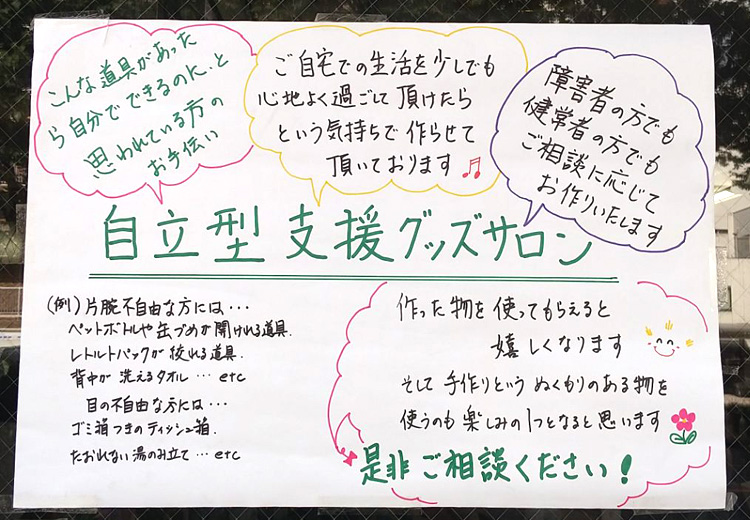 こんな道具があった
ら自分でできるのに、と
思われている方の
お手伝い
ご自宅での生活を少しでも
心地よく過ごして頂けたら
という気持ちで作らせて
頂いております♫
障害者の方でも
健常者の方でも
ご相談に応じて
お作りいたします
自立型支援グッズサロン
(例)片腕不自由な方には・・・
ペットボトルや缶づめが開けれる道具.
レトルトパックが絞れる道具.
背中が洗えるタオル … etc
目の不自由な方には・・・
ゴミ箱つきのティッシュ箱.
たおれない湯のみ立て … etc
作った物を使ってもらえると
嬉しくなります
そして手作りというぬくもりのある物を
使うのも楽しみの1つとなると思います
是非ご相談ください!